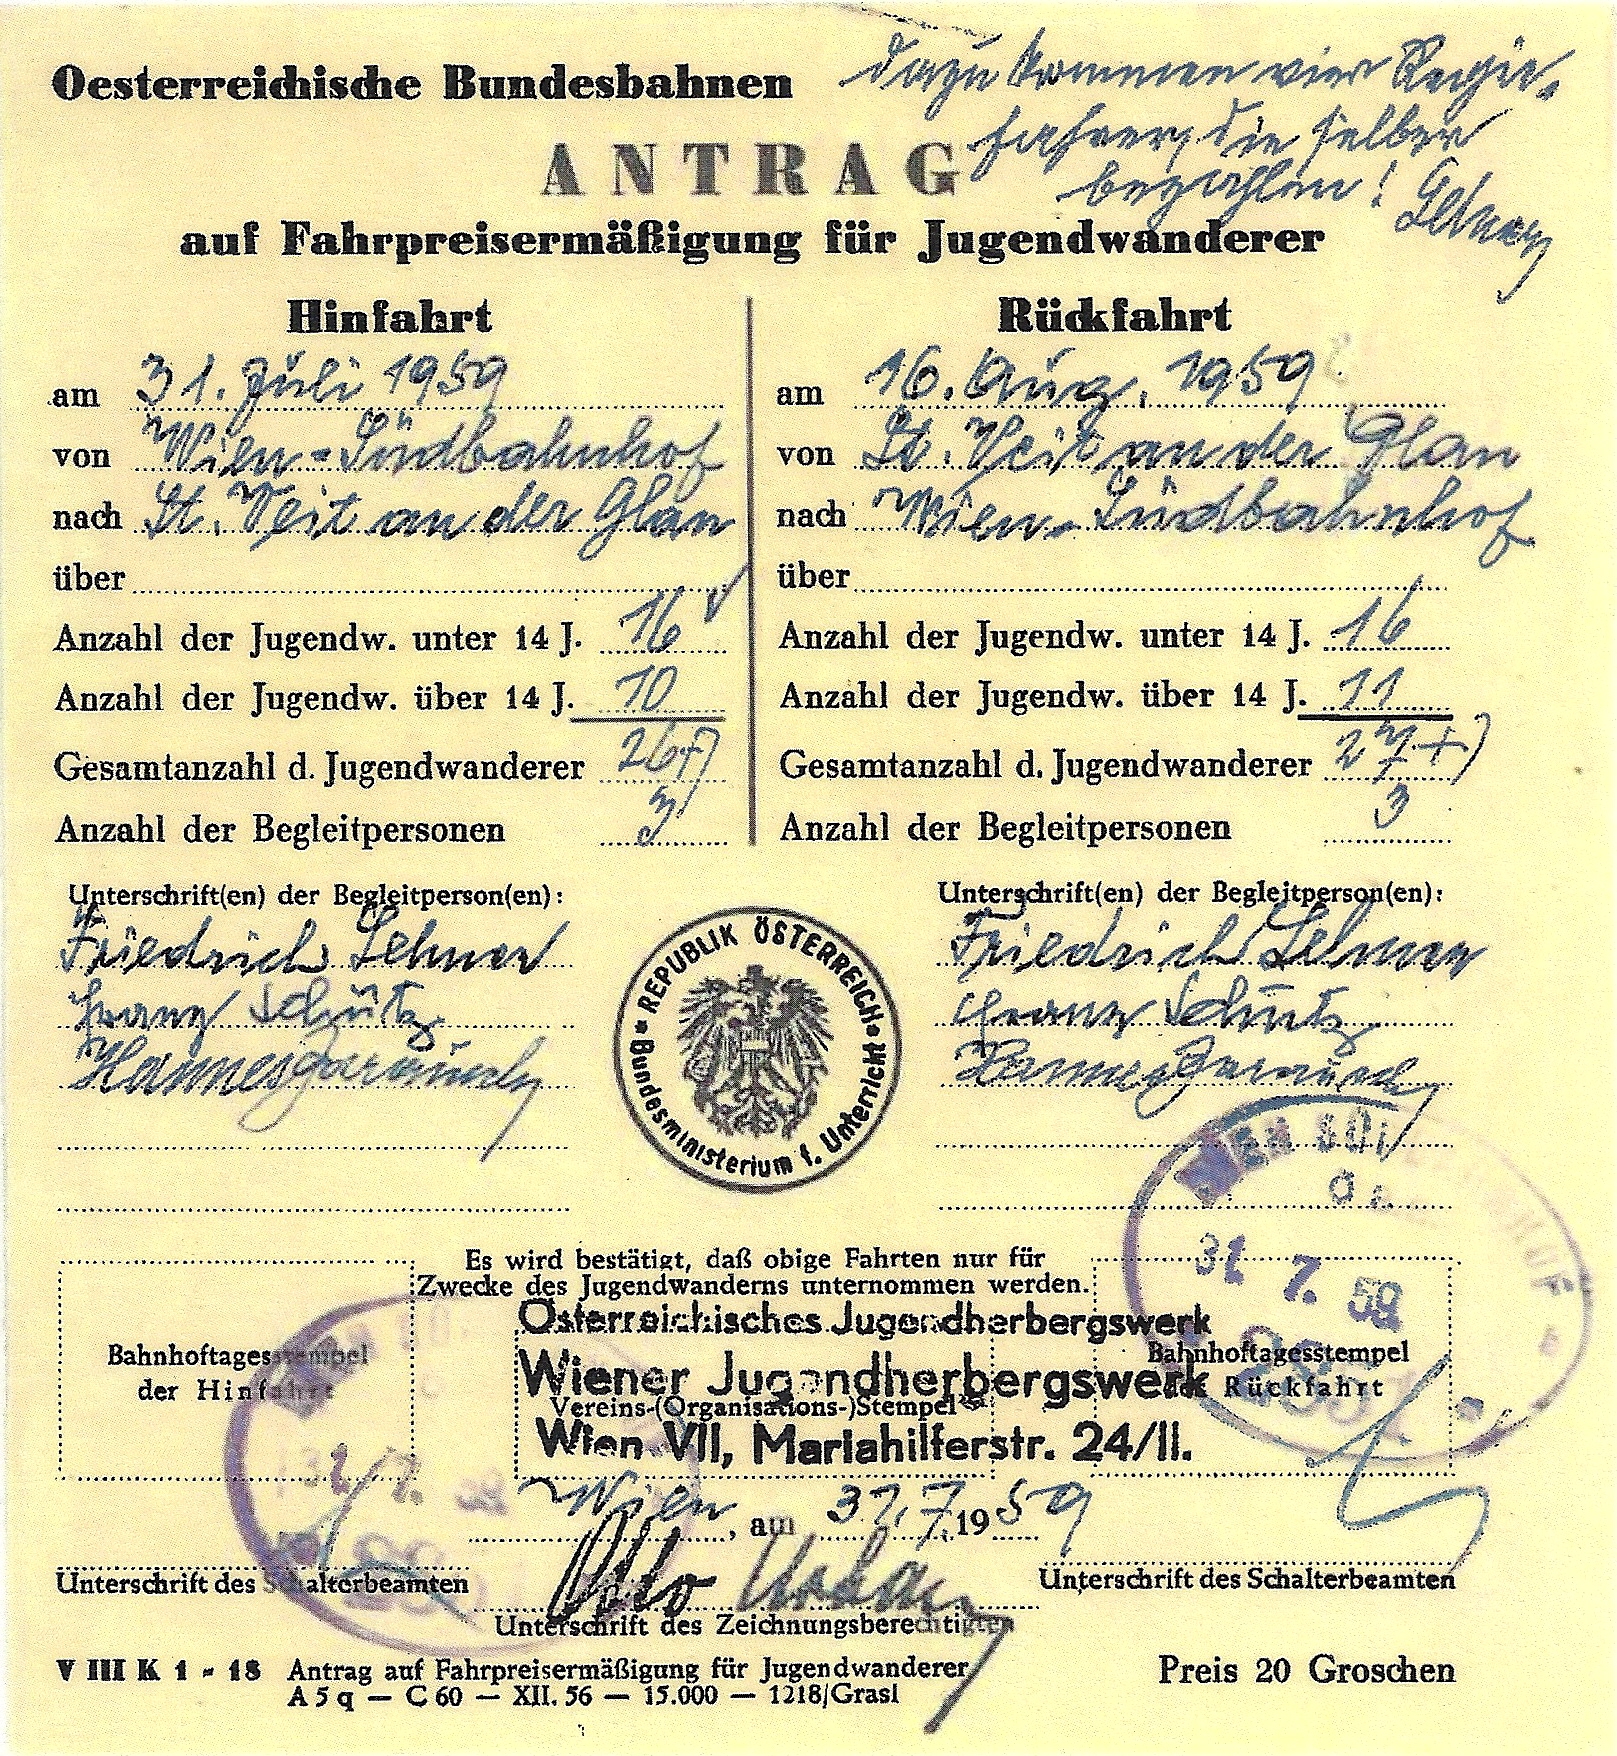 Oesterreichische Bundesbahnen
dazu kommen vier Regie-
fahrer, die selber
bezahlen! Lehner
ANTRAG
auf Fahrpreisermäßigung für Jugendwanderer
Hinfahrt
am 31. Juli 1959
von Wien-Südbahnhof
nach St. Veit an der Glan
über
Anzahl der Jugendw. unter 14 J. 16
Anzahl der Jugendw. über 14 J. 10
Gesamtanzahl d. Jugendwanderer 26+)
Anzahl der Begleitpersonen 3
Rückfahrt
am 16. Aug. 1959
von St. Veit an der Glan
nach Wien-Südbahnhof
über
Anzahl der Jugendw. unter 14 J. 16
Anzahl der Jugendw. über 14 J. 11
Gesamtanzahl d. Jugendwanderer 27+)
Anzahl der Begleitpersonen 3
Unterschrift(en) der Begleitperson(en):
Friedrich Lehner
Franz Schütz
Hannes
REPUBLIK ÖSTERREICH
Bundesministerium f. Unterricht
Unterschrift(en) der Begleitperson(en):
Friedrich Lehner
Franz Schütz
Hannes
31 7. 59
Es wird bestätigt, daß obige Fahrten nur für
Zwecke des Jugendwanderns unternommen werden.
Österreichisches Jugendherbergswerk
Wiener Jugendherbergswerk
Vereins-(Organisations-)Stempel
Wien VII, Mariahilferstr. 24/II.
Bahnhoftagesstempel
der Hinfahrt
Bahnhoftagesstempel
der Rückfahrt
31 7.
Wien, am 31.7.1959
Unterschrift des Schalterbeamten
Otto Urban
Unterschrift des Zeichnungsberechtigten
Unterschrift des Schalterbeamten
V III K 1 - 18 Antrag auf Fahrpreisermäßigung für Jugendwanderer
A 5 q — C 60 — XII. 56 — 15.000 — 1218/Grasl
Preis 20 Groschen